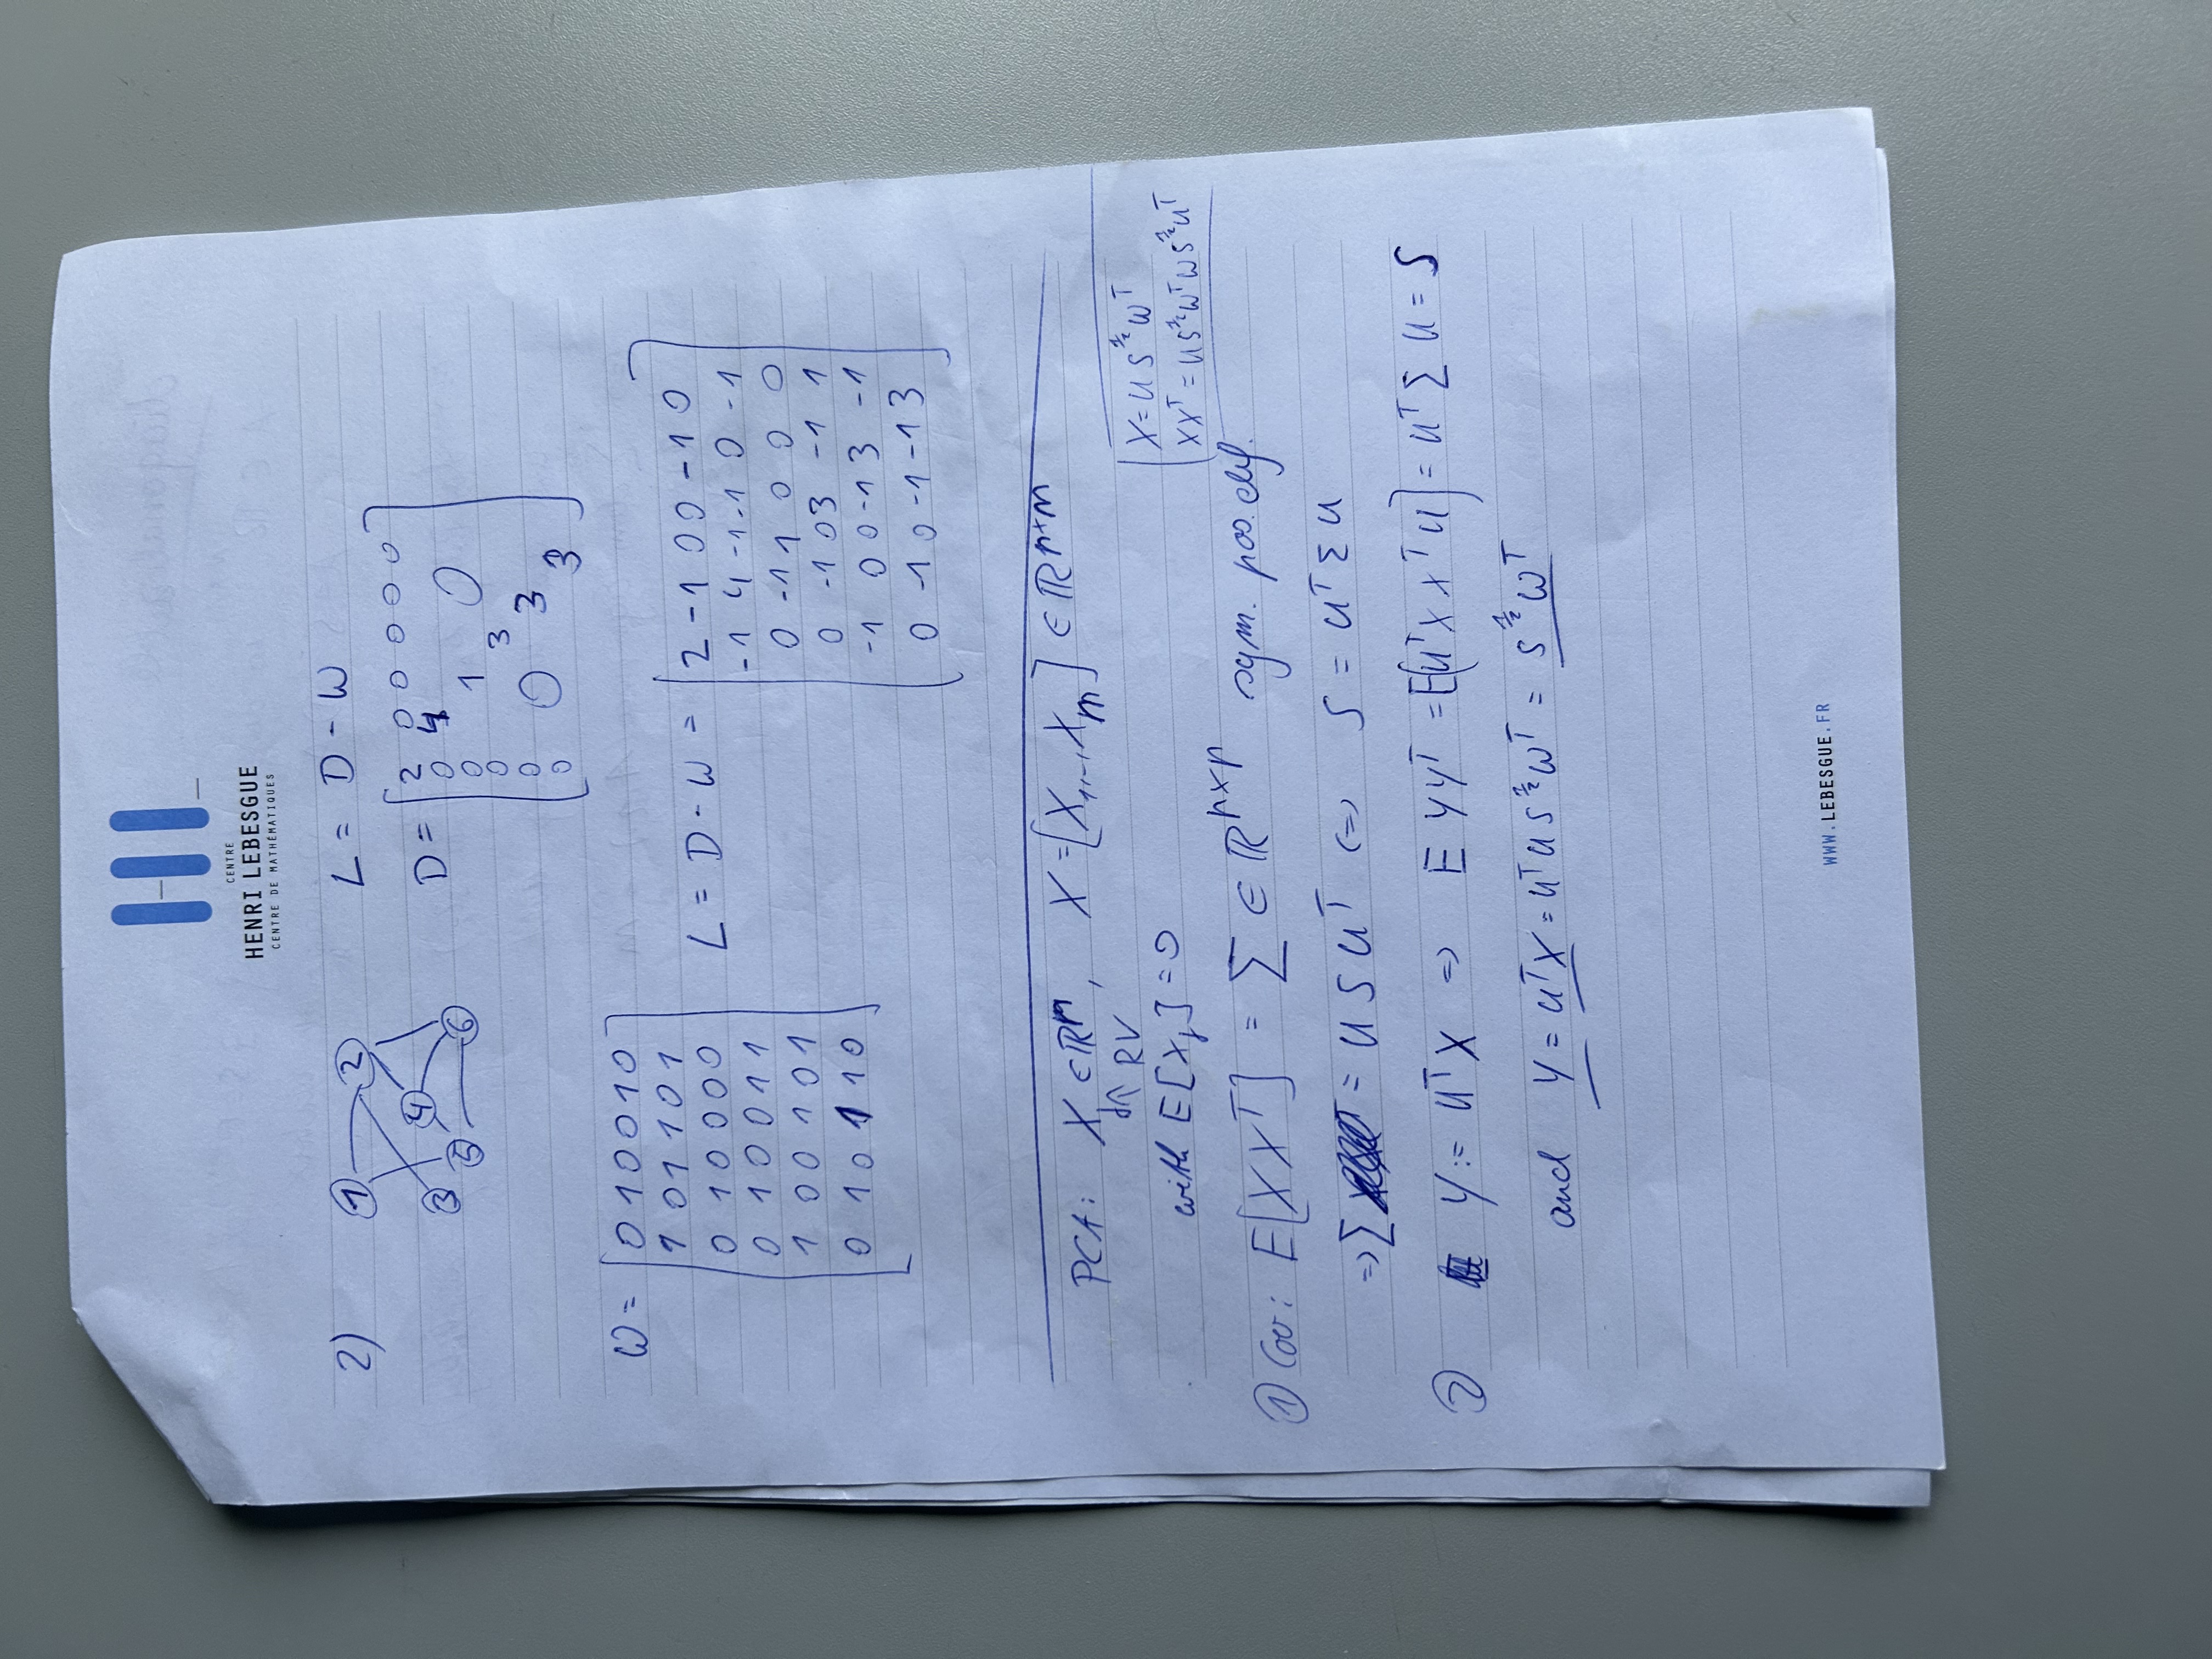 CENTRE
HENRI LEBESGUE
CENTRE DE MATHÉMATIQUES
2)
1 2
3 4
5 6
L = D - W
D = [2 0 0 0 0 0
0 4
0 1 0
0 3
0 0 3
0 3]
W = [0 1 0 0 1 0
1 0 1 1 0 1
0 1 0 0 0 0
0 1 0 0 1 1
1 0 0 1 0 1
0 1 0 1 1 0]
L = D - W = [2 -1 0 0 -1 0
-1 4 -1 -1 0 -1
0 -1 1 0 0 0
0 -1 0 3 -1 1
-1 0 0 -1 3 -1
0 -1 0 -1 -1 3]
PCA: X_j ∈ ℝ^p, X = [X_1,..,X_m] ∈ ℝ^{p×m}
↑ RV
with E[X_j] = 0
X = U S^½ W^T
XX^T = U S^½ W^T W S^½ U^T
① Cov: E[XX^T] = Σ ∈ ℝ^{p×p} sym. pos. def.
=> Σ = U S U^T <=> S = U^T Σ U
② Y := U^T X => E YY^T = E[U^T X X^T U] = U^T Σ U = S
and Y = U^T X = U^T U S^½ W^T = S^½ W^T
WWW.LEBESGUE.FR